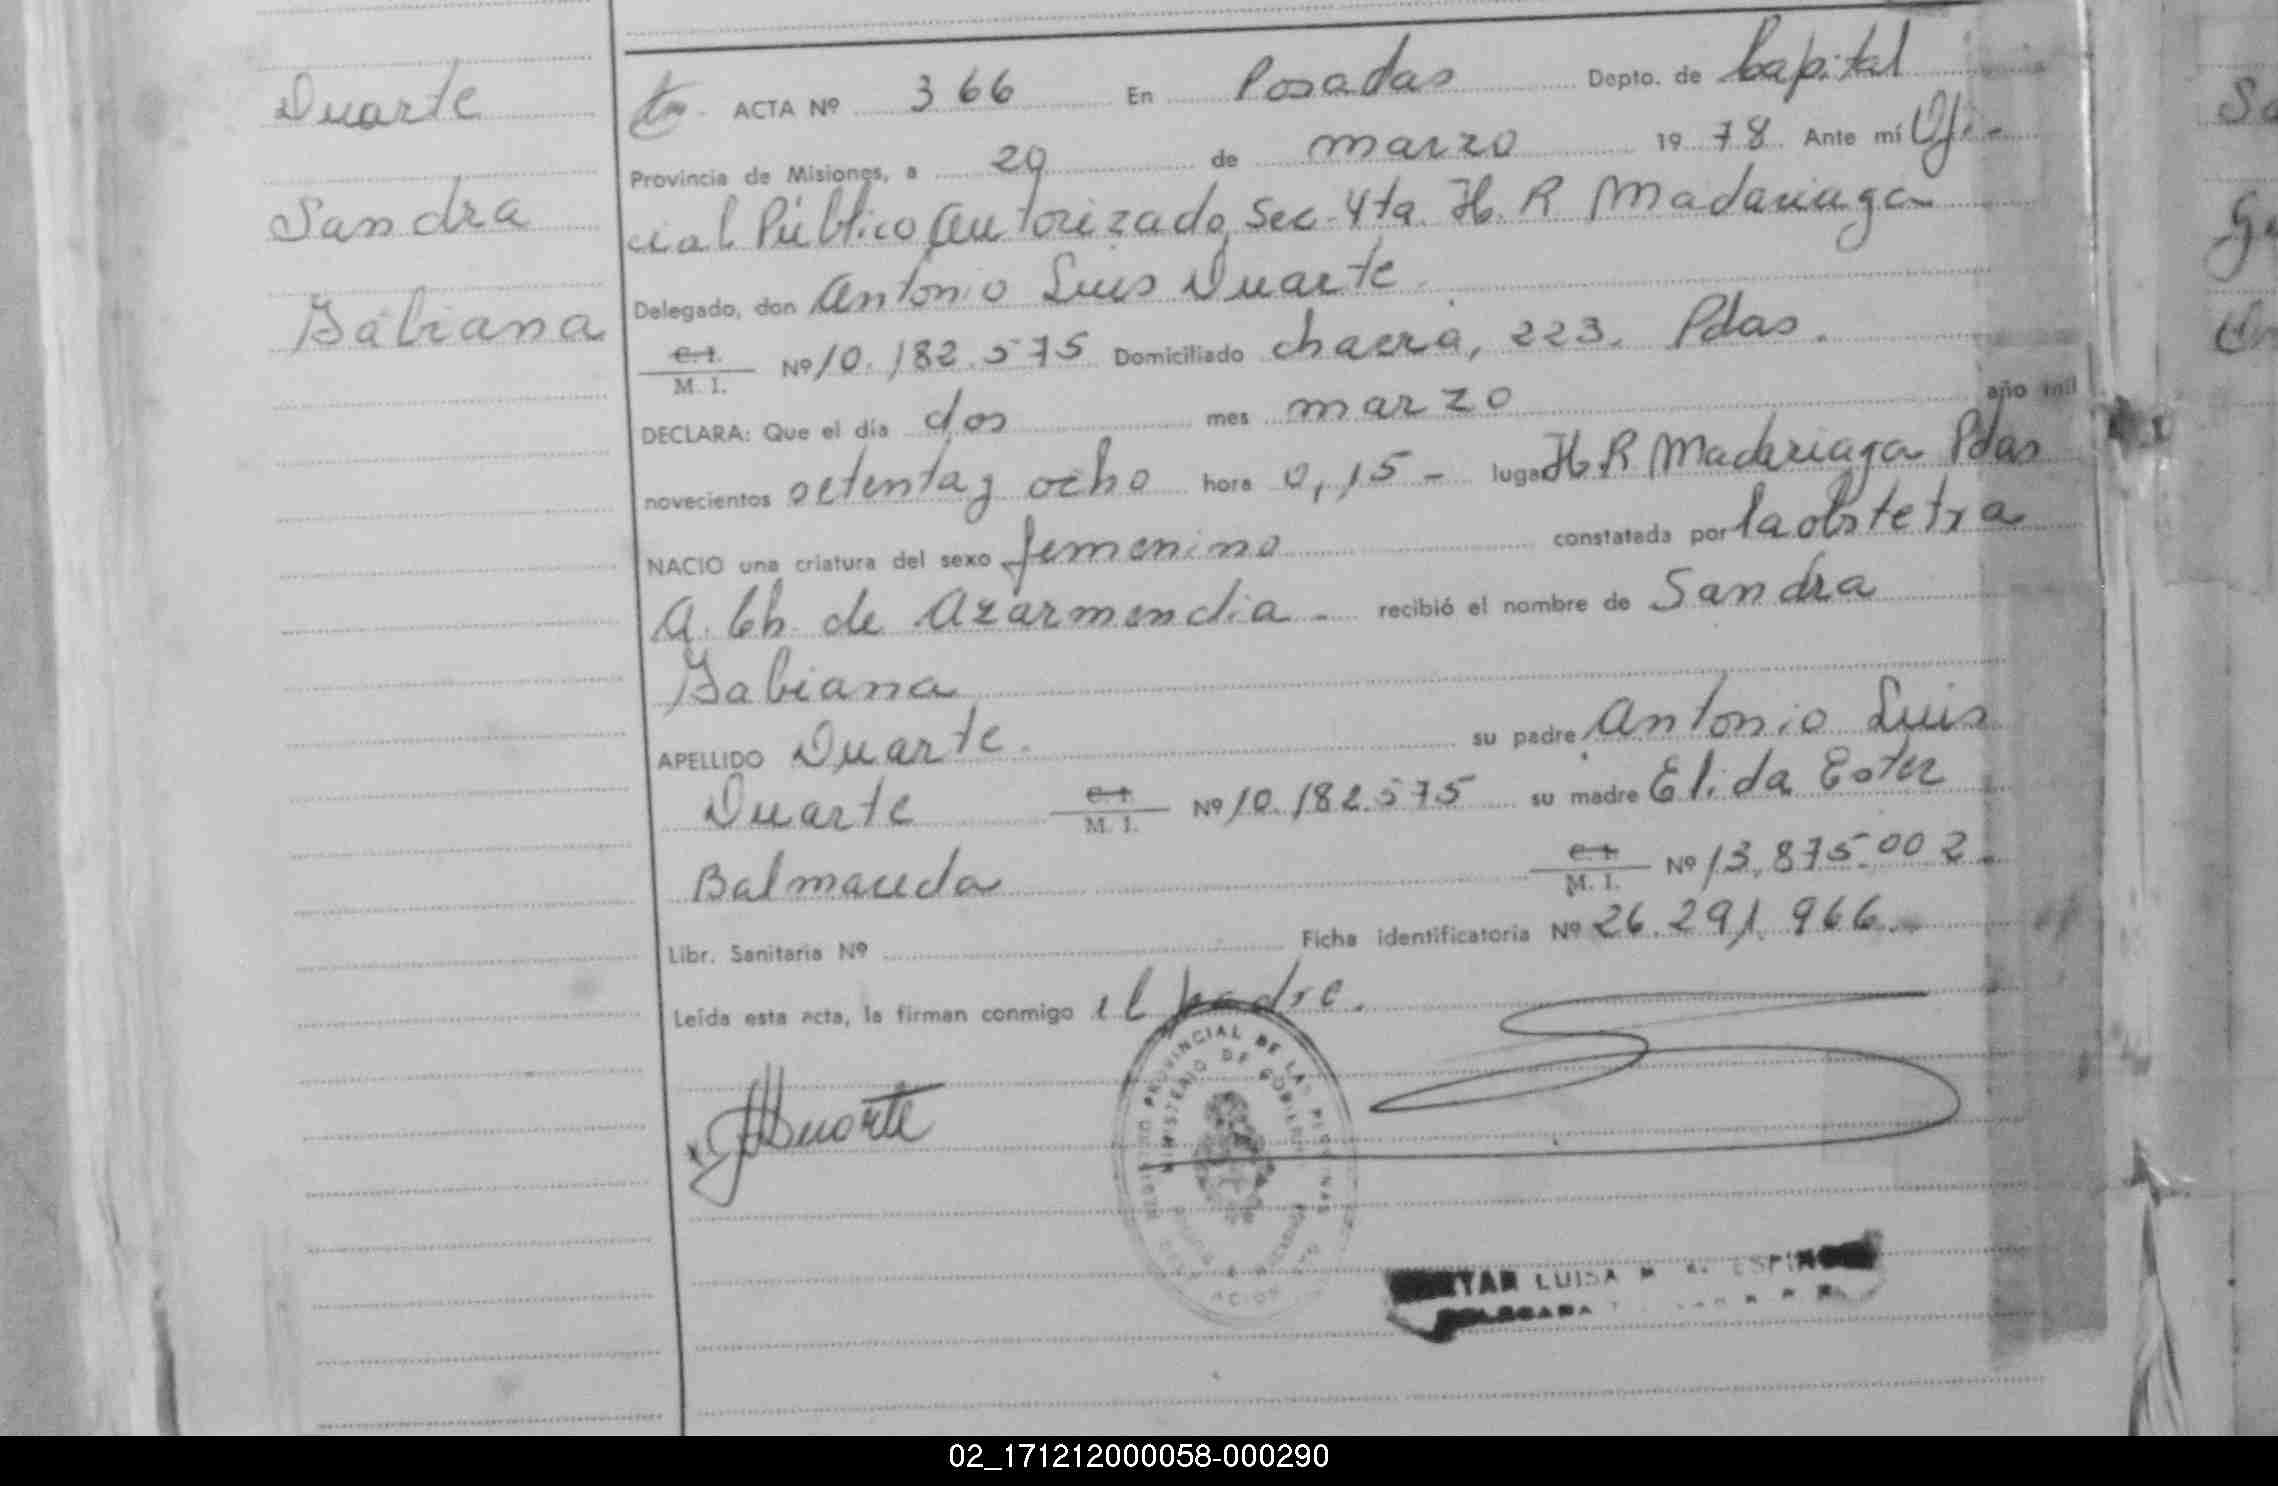 Duarte
Sandra
Fabiana
ACTA Nº 366 En Posadas Depto. de Capital
Provincia de Misiones, a 29 de marzo 1978 Ante mí Ofi-
cial Público Autorizado Sec 4ta H. R Madariaga
Delegado, don Antonio Luis Duarte.
C. I. M. I. Nº 10.182.575 Domiciliado chacra, 223. Pdas.
DECLARA: Que el día dos mes marzo año mil
novecientos setenta y ocho hora 0,15 - lugar H R Madariaga Pdas
NACIO una criatura del sexo femenino constatada por la obstetra
A. Ch. de Azarmendia - recibió el nombre de Sandra
Fabiana
APELLIDO Duarte. su padre Antonio Luis
Duarte C. I. M. I. Nº 10.182.575 su madre Elida Ester
Balmaceda C. I. M. I. Nº 13.875.002.
Libr. Sanitaria Nº Ficha identificatoria Nº 26.291.966.
Leída esta acta, la firman conmigo el padre.
Duarte
PROVINCIAL DE LAS PERSONAS
MINISTERIO DE GOBIERNO
LUISA
02_171212000058-000290